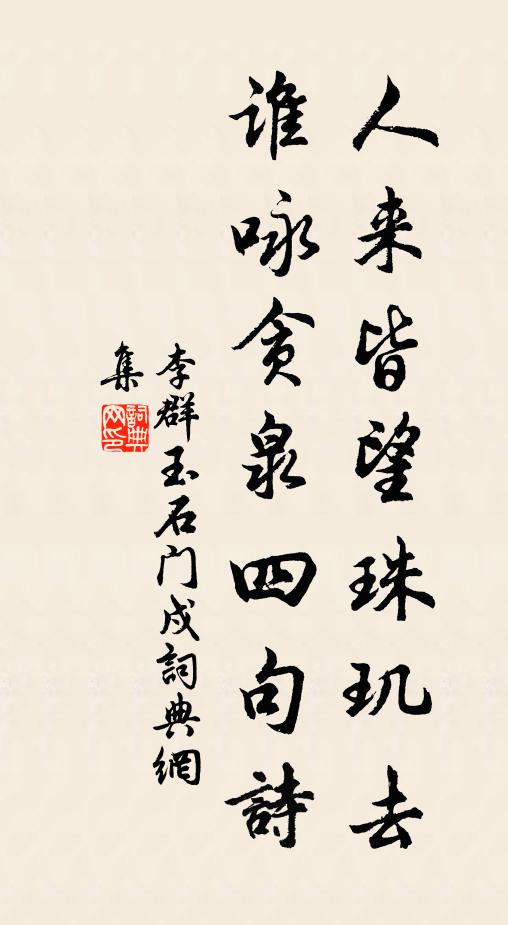 人来皆望珠玑去
谁咏贪泉四句詩
李群玉石门戍詞典網
集
詞典網印